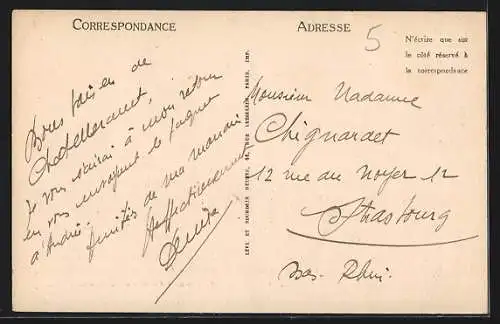 CORRESPONDANCE
ADRESSE
5
N'écrire que sur
le côté réservé à
la correspondance
Bons baisers de
Chatellerault,
Je vous écrirai à mon retour
en vous envoyant le paquet
à André.
Amitiés de ma maman
Affectueusement
Denise
LÉVY ET NEURDEIN RÉUNIS, 44, RUE LETELLIER, PARIS, IMP.
Monsieur Madame
Chignardet
12 rue du Noyer 12
Strasbourg
Bas-Rhin.